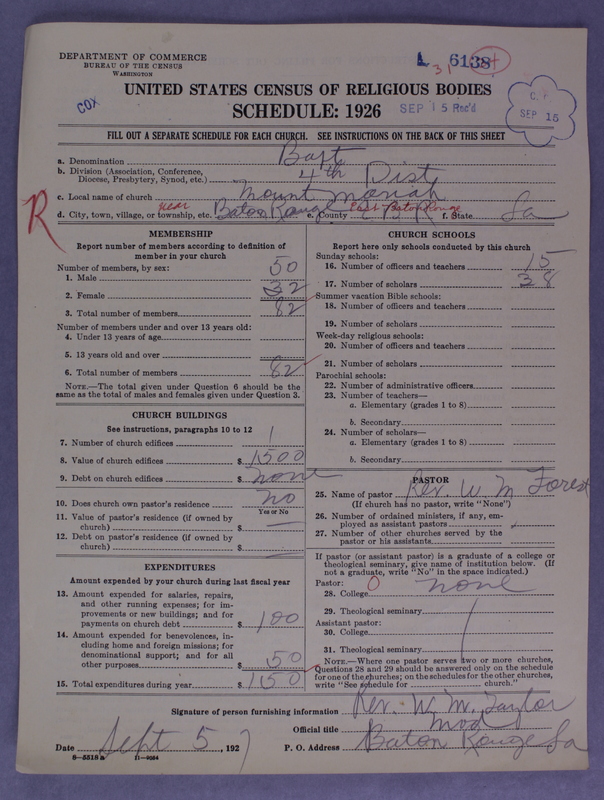 DEPARTMENT OF COMMERCE
BUREAU OF THE CENSUS
WASHINGTON
6138
31
COX
UNITED STATES CENSUS OF RELIGIOUS BODIES
SCHEDULE: 1926
SEP 15 Rec'd
SEP 15
FILL OUT A SEPARATE SCHEDULE FOR EACH CHURCH. SEE INSTRUCTIONS ON THE BACK OF THIS SHEET
a. Denomination Bapt
b. Division (Association, Conference, Diocese, Presbytery, Synod, etc.) 4th Dist
c. Local name of church Mount Moriah
R
d. City, town, village, or township, etc. near Baton Rouge e. County East Baton Rouge E B R f. State La
MEMBERSHIP
Report number of members according to definition of member in your church
Number of members, by sex:
1. Male 50
2. Female 32
3. Total number of members 82
Number of members under and over 13 years old:
4. Under 13 years of age
5. 13 years old and over
6. Total number of members 82
NOTE.—The total given under Question 6 should be the same as the total of males and females given under Question 3.
CHURCH BUILDINGS
See instructions, paragraphs 10 to 12
7. Number of church edifices 1
8. Value of church edifices $ 1500
9. Debt on church edifices $ none
10. Does church own pastor's residence no
Yes or No
11. Value of pastor's residence (if owned by church) $ —
12. Debt on pastor's residence (if owned by church) $
EXPENDITURES
Amount expended by your church during last fiscal year
13. Amount expended for salaries, repairs, and other running expenses; for improvements or new buildings; and for payments on church debt $ 100
14. Amount expended for benevolences, including home and foreign missions; for denominational support; and for all other purposes $ 50
15. Total expenditures during year $ 150
CHURCH SCHOOLS
Report here only schools conducted by this church
Sunday schools:
16. Number of officers and teachers 15
17. Number of scholars 38
Summer vacation Bible schools:
18. Number of officers and teachers
19. Number of scholars
Week-day religious schools:
20. Number of officers and teachers
21. Number of scholars
Parochial schools:
22. Number of administrative officers
23. Number of teachers—
a. Elementary (grades 1 to 8)
b. Secondary
24. Number of scholars—
a. Elementary (grades 1 to 8)
b. Secondary
PASTOR
25. Name of pastor Rev. W. M Forest
(If church has no pastor, write "None")
26. Number of ordained ministers, if any, employed as assistant pastors
27. Number of other churches served by the pastor or his assistants
If pastor (or assistant pastor) is a graduate of a college or theological seminary, give name of institution below. (If not a graduate, write "No" in the space indicated.)
Pastor: 0
28. College none
29. Theological seminary
Assistant pastor:
30. College
31. Theological seminary
NOTE.—Where one pastor serves two or more churches, Questions 28 and 29 should be answered only on the schedule for one of the churches; on the schedules for the other churches, write "See schedule for church."
Signature of person furnishing information Rev. W. M. Taylor
Official title Mod
Date Sept 5, 1927 P. O. Address Baton Rouge La
8—5518a 11—9564